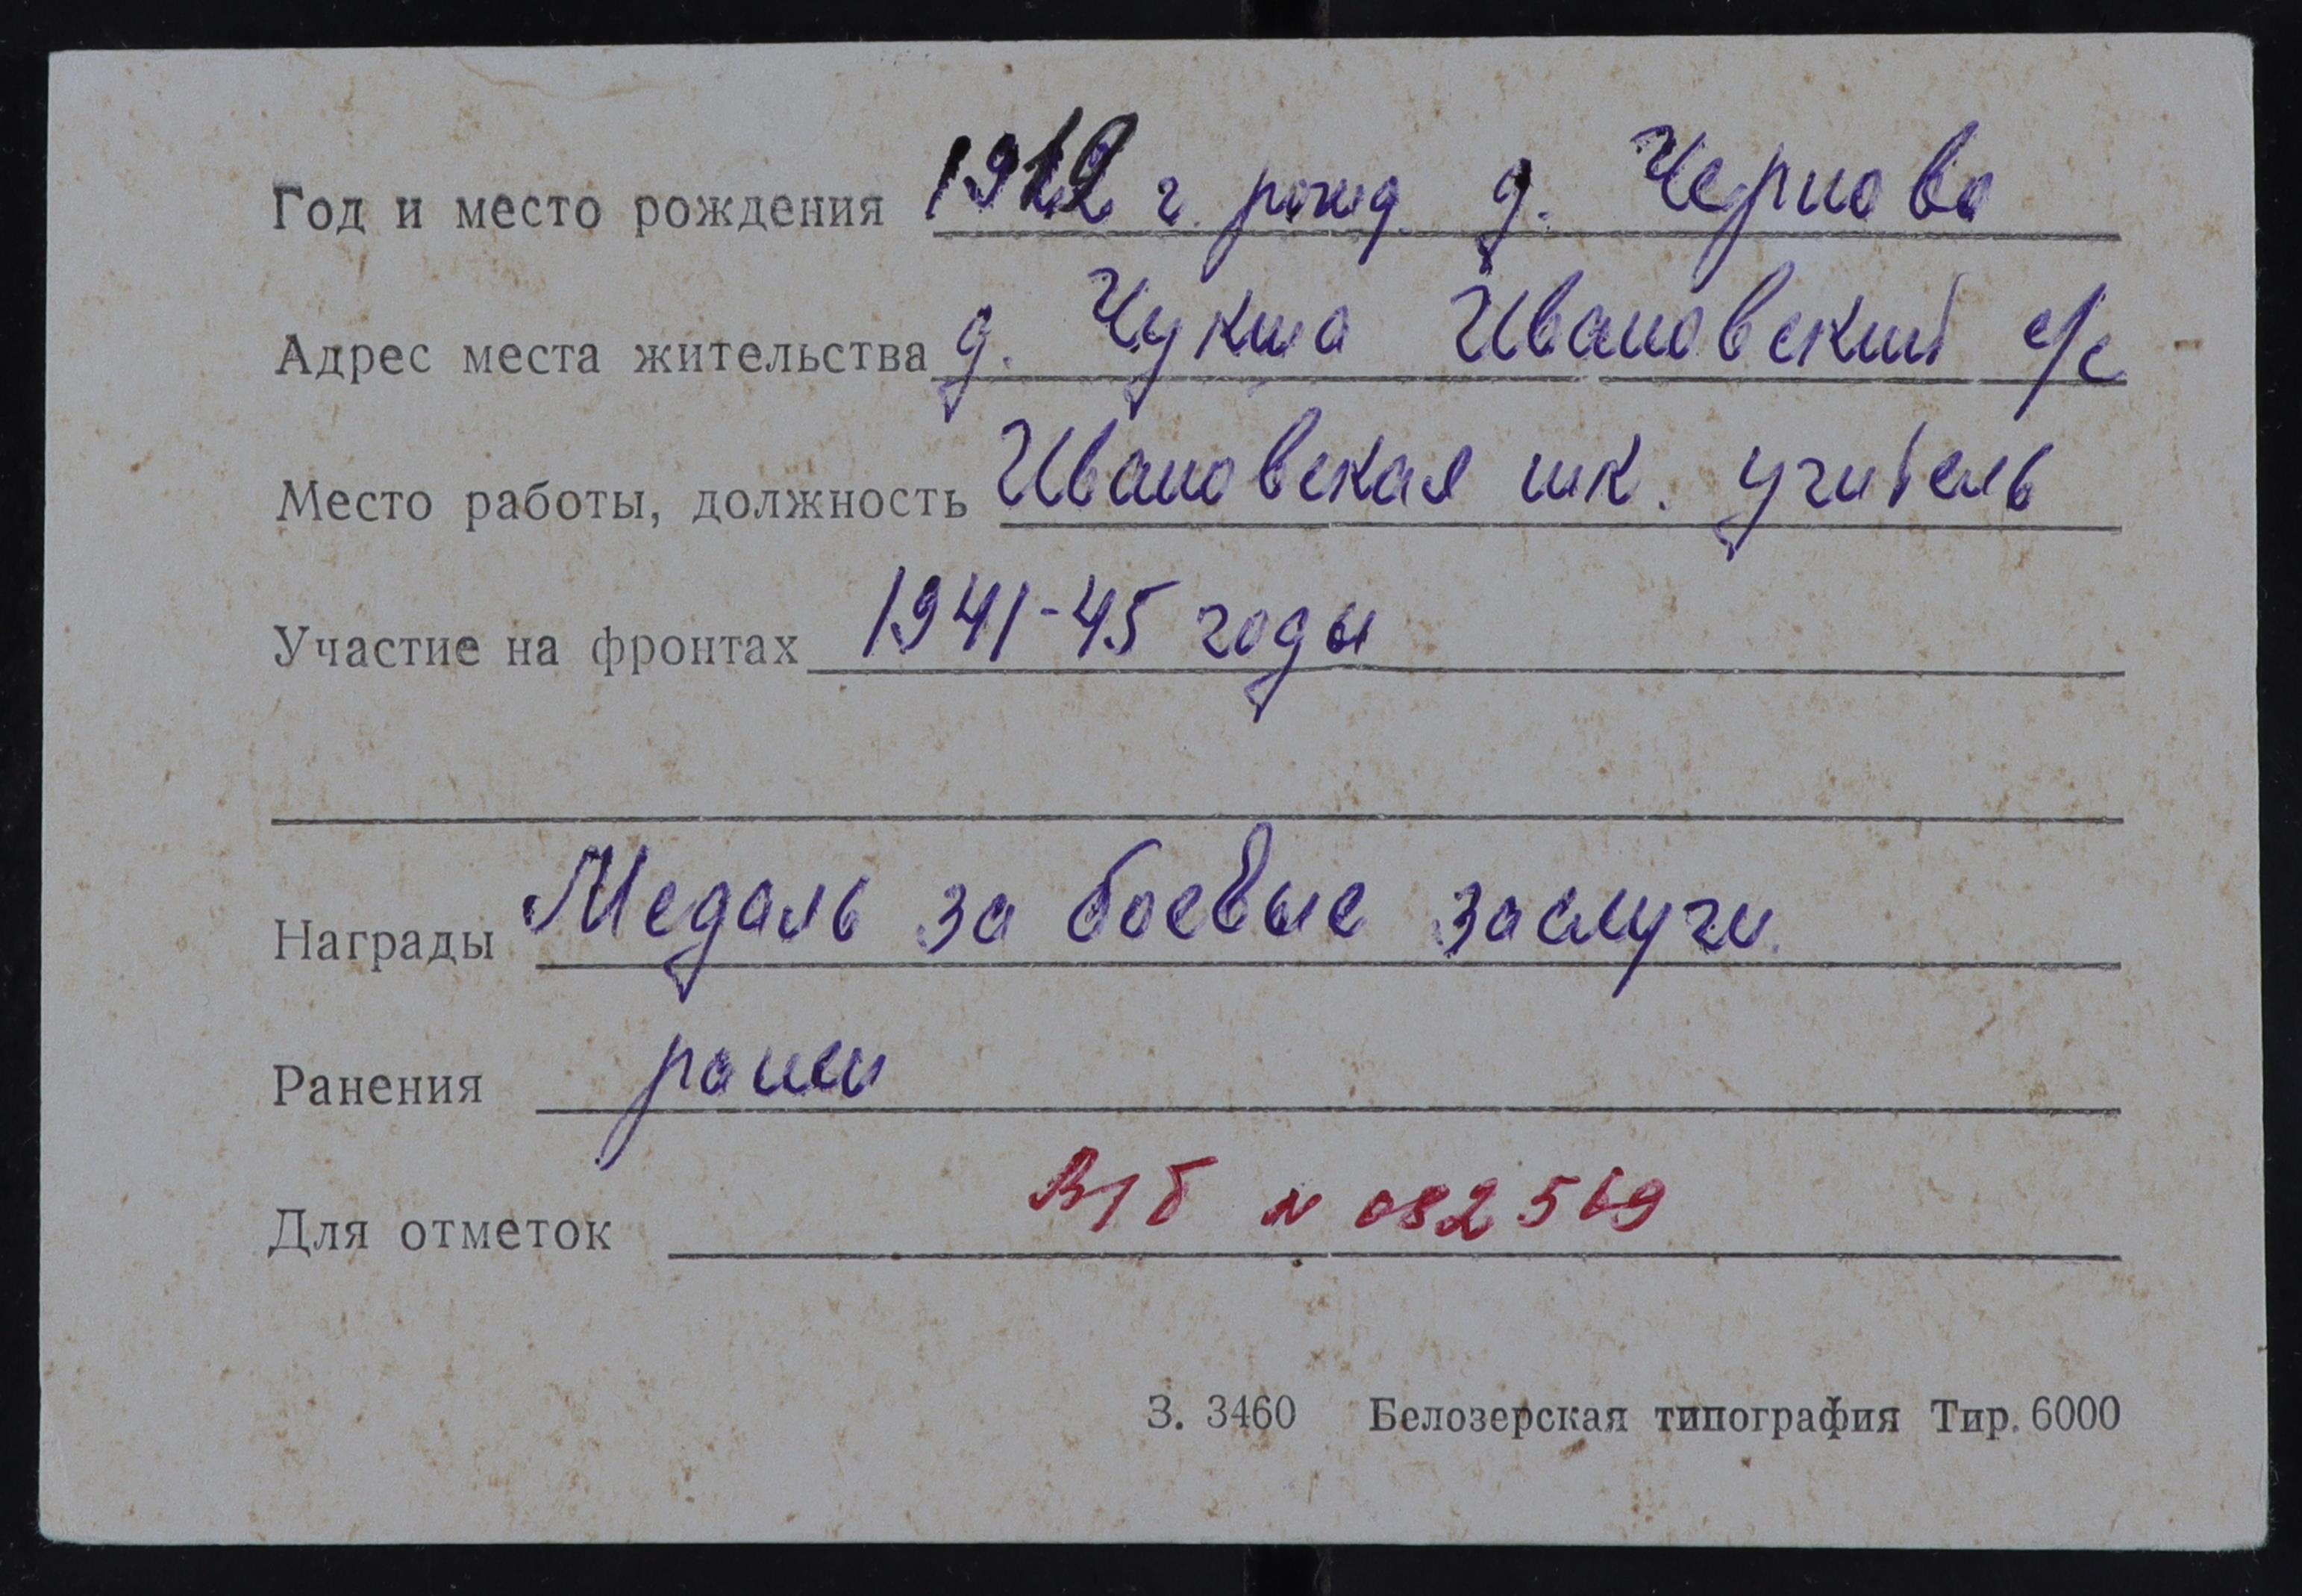 Год и место рождения 1912 г. рожд. д. Черново
Адрес места жительства д. Чукша Ивановский с/с
Место работы, должность Ивановская шк. учитель
Участие на фронтах 1941-45 годы
Награды Медаль за боевые заслуги.
Ранения ранен
Для отметок В/б № 082569
З. 3460 Белозерская типография Тир. 6000